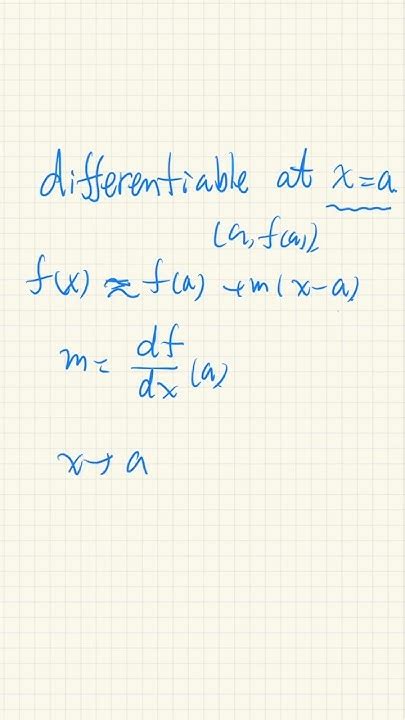 differentiable at x=a
(a, f(a))
f(x) ≈ f(a) + m(x-a)
m = df/dx (a)
x→a